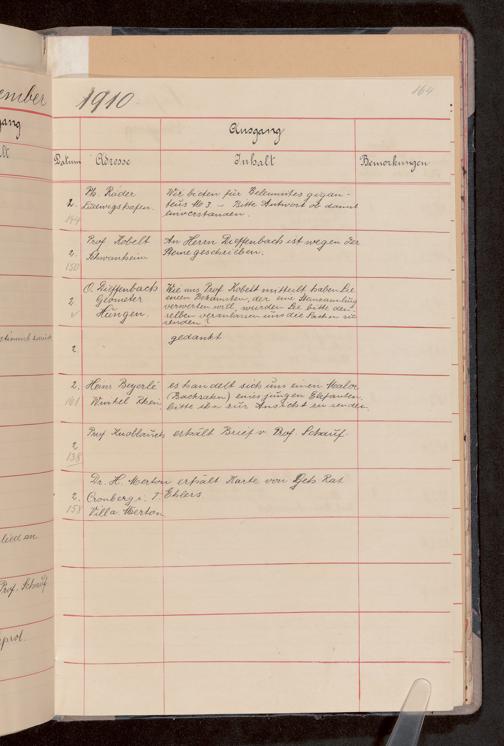 ember
1910
164
gang
Ausgang
Datum Adresse Inhalt Bemerkungen
2. Ph. Röder Wir bieten für Belemnites gigan-
144 Ludwigshafen. teus M 3 – Bitte Antwort ob damit
einverstanden.
Prof. Kobelt An Herrn Dieffenbach ist wegen der
2. Schwanheim Steine geschrieben.
150
O. Dieffenbach Wie uns Prof Kobelt mitteilt haben Sie
2 Geometer einen Bekannten, der eine Steinsammlung
v Hungen. verwerten will, würden Sie bitte den-
selben veranlassen uns die Sachen zu
senden
stimmt zurück
2 gedankt
2. Heinr Beyerlé es handelt sich um einen Molar
161 Winkel Rhein (Backzahn) eines jungen Elefanten,
bitte ihn zur Ansicht zu senden.
Prof Knoblauch erhält Brief v. Prof. Schauf.
2
138
Dr. H. Merton erhält Karte von Geh Rat
2. Cronberg i. T. Ehlers
158 Villa Merton
lied an
Prof. Schauf